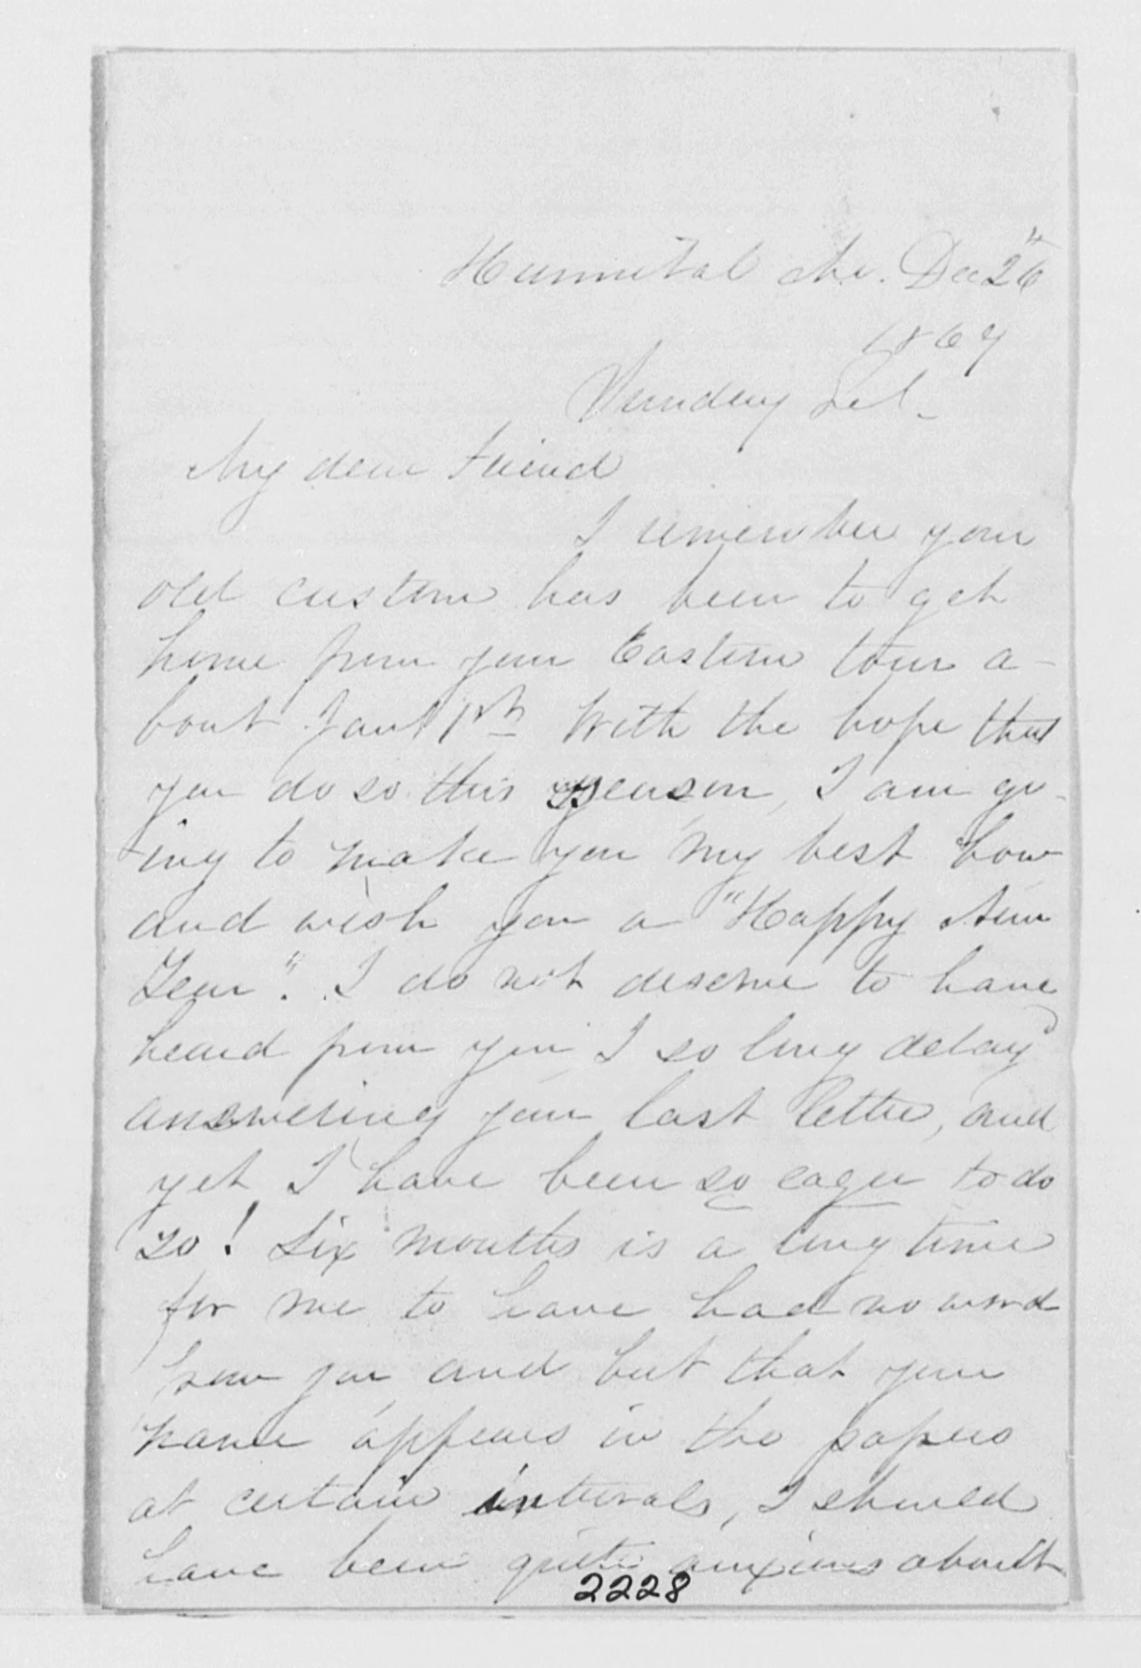 Hannibal Mo. Dec 26"
1867
My dear Friend
I remember your
old custom has been to get
home from your Eastern tour a-
bout Jany 1st. With the hope that
you do so this season, I am go-
ing to make you my best bow
and wish you a "Happy New
Year". I do not deserve to have
heard from you, I so long delay'd
answering your last letter, and
yet I have been so eager to do
so! Six months is a long time
for me to have had no word
from you and but that your
name appears in the papers
at certain intervals, I should
have been quite anxious about
2228